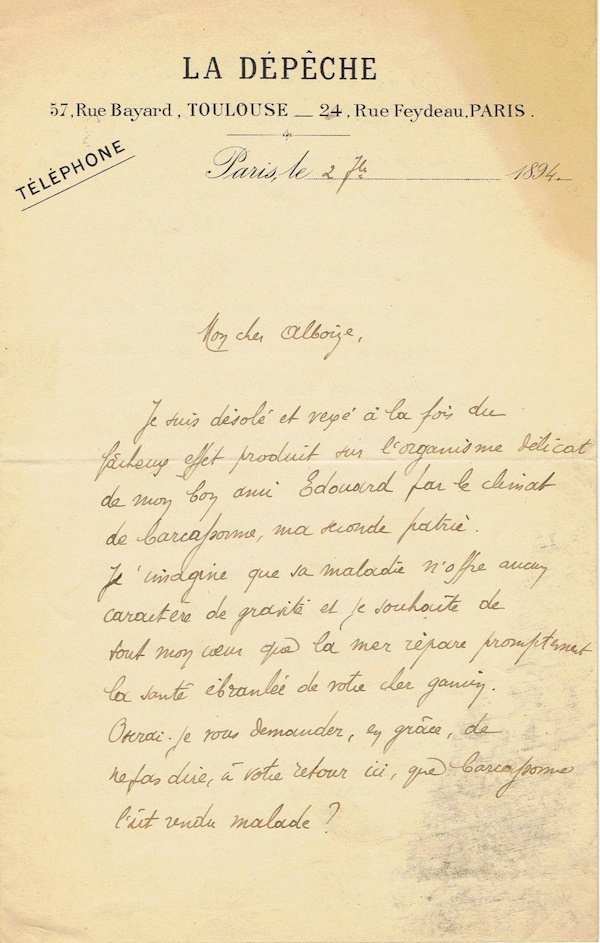 LA DÉPÊCHE
57, Rue Bayard, TOULOUSE — 24, Rue Feydeau, PARIS.
TÉLÉPHONE
Paris, le 2 1894
Mon cher Alboize,
Je suis désolé et vexé à la fois du
fâcheux effet produit sur l'organisme délicat
de mon bon ami Edouard par le climat
de Carcassonne, ma seconde patrie.
J'imagine que sa maladie n'offre aucun
caractère de gravité et je souhaite de
tout mon cœur que la mer répare promptement
la santé ébranlée de votre cher gamin.
Oserai-je vous demander, en grâce, de
ne pas dire, à votre retour ici, que Carcassonne
l'ait rendu malade ?